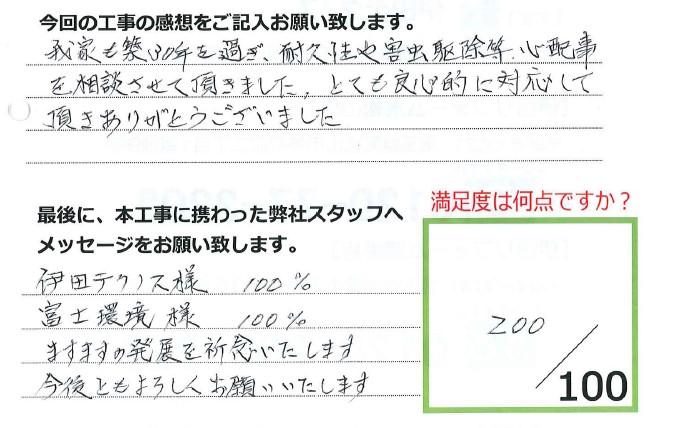 今回の工事の感想をご記入お願い致します。
我家も築30年を過ぎ、耐久性や害虫駆除等、心配事
を相談させて頂きました。とても良心的に対応して
頂きありがとうございました
満足度は何点ですか？
最後に、本工事に携わった弊社スタッフへ
メッセージをお願い致します。
伊田テクノス様 100%
富士環境様 100%
ますますの発展を祈念いたします
今後ともよろしくお願いいたします
200
/100